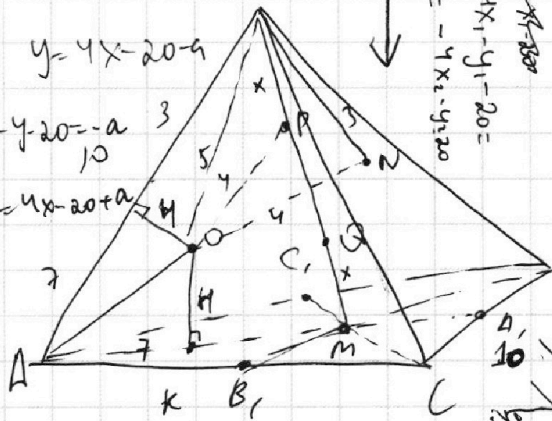 y=4x-20-a
-y-20=-a
,0
=4x-20+a
4x₁-y₁-20=
=-4x₂-y₂20
3
x
P
3
5
4
N
4
H
O
Q
C₁
x
7
H
A
7
M
A₁
10
K
B₁
C